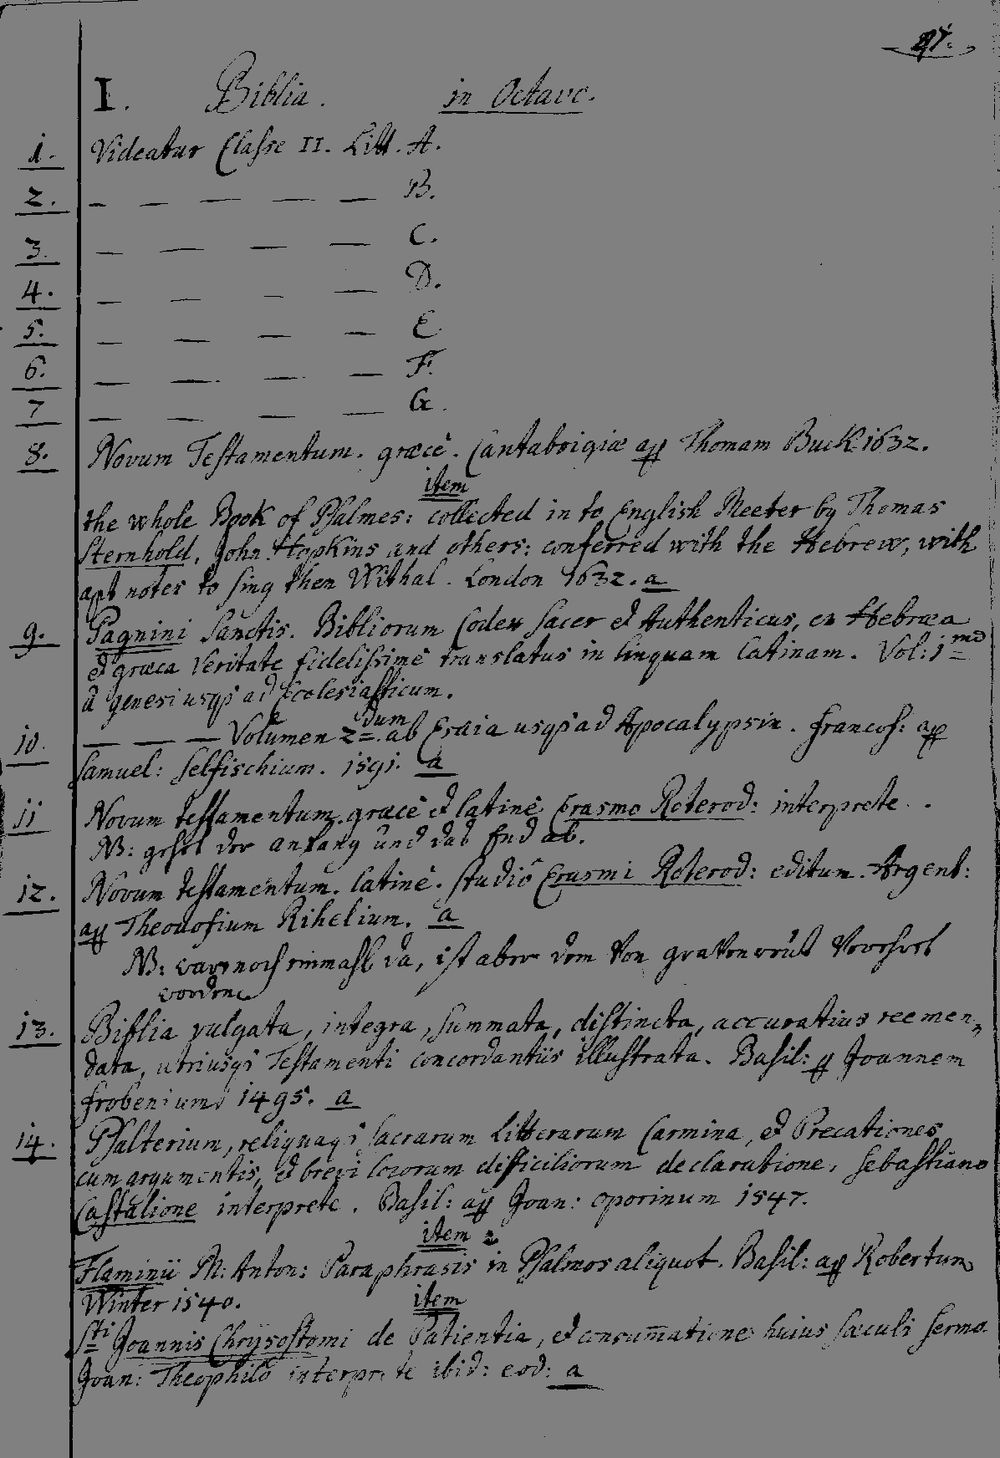 27.
I. Biblia. in Octavo.
1. Videatur Classe II. Litt. A.
2. — — — — — B.
3. — — — — C.
4. — — — — D.
5. — — — — E.
6. — — — — F.
7 — — — — G.
8. Novum Testamentum. græcè. Cantabrigiæ app Thomam Buck 1632.
item
the whole Book of Psalmes: collected in to English Meeter by Thomas
Sternhold, John Hopkins and others: conferred with the Hebrew, with
apt notes to sing then Withal. London 1632. a
9. Pagnini Sanctis. Bibliorum Codex sacer et Authenticus, ex Hebræa
et græca veritate fidelissimè translatus in linquam latinam. Vol: 1
à genesi usq3 ad Ecclesiasticum.
10. — — — — Volumen 2dum. ab Esaia usq3 ad Apocalypsin. francof: app
Samuel: Selfischium. 1591. a
11 Novum testamentum. græcè et latinè Erasmo Roterod: interprete.
NB: gehet der anfang und das End ab.
12. Novum testamentum. latinè. studiô Erasmi Roterod: editum. Argent:
app Theodosium Rihelium. a
NB: ware noch einmahl da, ist aber dem von verehret
worden
13. Biblia vulgata, integra, summata, distincta, accuratius reemen„
data, utriusq3 Testamenti concordantiis illustrata. Basil: app Joannem
frobenium 1495. a
14. Psalterium, reliquaq3 sacrarum litterarum Carmina, et Precationes
cum argumentis, et brevi locorum difficiliorum declaratione, Sebastiano
Castalione interprete. Basil: app Joan: oporinum 1547.
item
Flaminii M: Anton: Paraphrasis in Psalmos aliquot. Basil: app Robertum
Winter 1540.
item
Sti Joannis Chrysostomi de Patientia, et consum̄atione huius sæculi sermo
Joan: Theophilô interprete ibid: eod: a